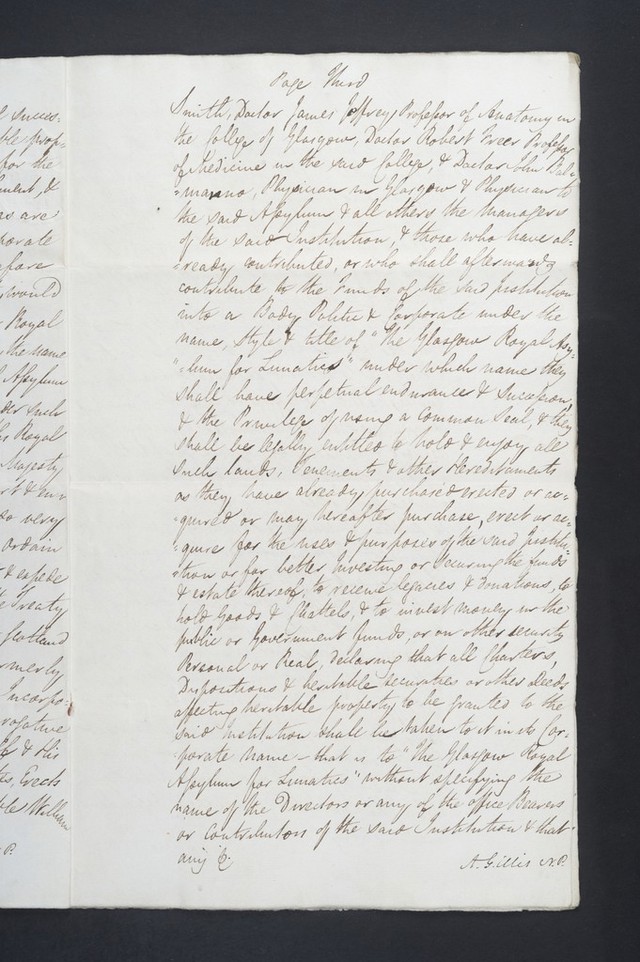 l succes-
ble prop-
for the
ment, &
as are
porate
efore
would
Royal
the name
l Assylum
der such
his Royal
Majesty
t & en-
so very
ordain
& expede
e Treaty
Scotland
rmerly
Incorpo-
rogative
& His
Erects
ble William
P.
Page Third
Smith, Doctor James Jeffrey, Professor of Anatomy in
the College of Glasgow, Doctor Robert Freer Professor
of Medicine in the said College, & Doctor John Bal-
=manno, Physician in Glasgow & Physician to
the said Assylum & all others the managers
of the said Institution, & those who have al-
=ready contributed, or who shall afterwards
contribute to the Funds of the said Institution
into a Body Politic & Corporate under the
name, style & title of "the Glasgow Royal Asy-
"=lum for Lunatics" under which name they
shall have perpetual endurance & Succession,
& the Privilege of using a Common Seal, & they
shall be legally entitled to hold & enjoy all
such lands, Tenements & other Hereditaments
as they have already purchased erected or ac-
=quired or may hereafter purchase, erect or ac-
=quire for the uses & purposes of the said Institu-
=tion or for better Investing or Securing the funds
& estate thereof, to receive legacies & Donations, to
hold Goods & Chattels, & to invest money in the
public or Government funds, or on other security
Personal or Real, declaring that all Charters,
Dispositions & heritable securities or other Deeds
affecting heritable property to be granted to the
said Institution shall be taken to it in its Cor-
porate name - that is to "The Glasgow Royal
Assylum for Lunatics" without specifying the
name of the Directors or any of the office Bearers
or Contributors of the said Institution & that
any &c.
A. Gillis N.P.